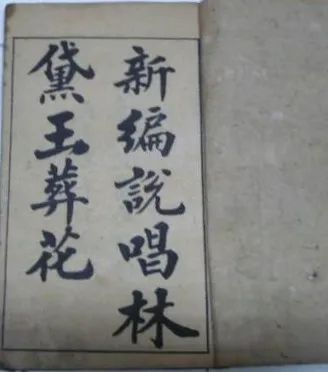 新编說唱林
黛玉葬花